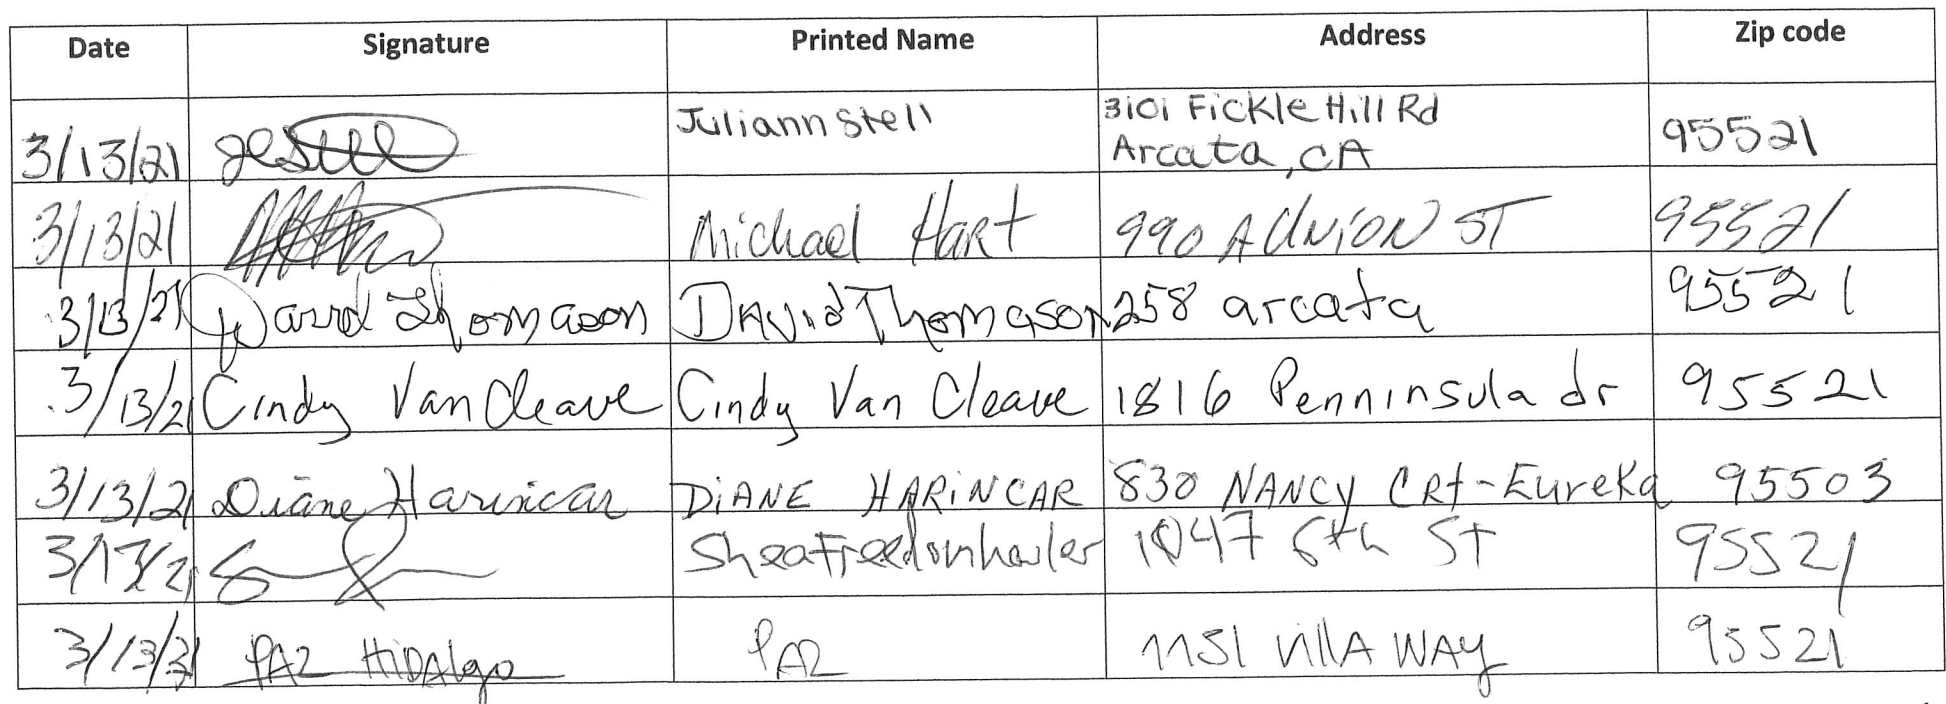 Date Signature Printed Name Address Zip code
3/13/21 Juliann Stell 3101 Fickle Hill Rd 95521
Arcata, CA
3/13/21 Michael Hart 990 A UNION ST 95521
3/13/21 David Thomason David Thomason 258 arcata 95521
3/13/21 Cindy Van Cleave Cindy Van Cleave 1816 Penninsula dr 95521
3/13/21 Diane Harincar DiANE HARiNCAR 830 NANCY CRt-Eureka 95503
3/13/21 1047 6th St 95521
3/13/21 PAZ HiDAlgo PAZ 1151 VillA WAy 95521